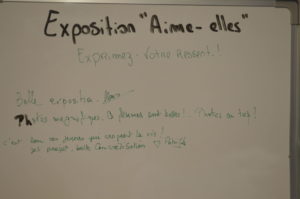 Exposition "Aime-elles"
Exprimez votre ressenti!
Belle expositio
Photos magnifiques, femmes sont belles! Photos au top!
c'est bon ces femmes qui croquent la vie!
belle